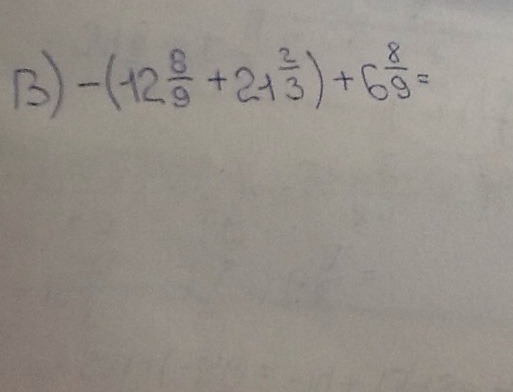 В) -(12 8/9 + 21 2/3) + 6 8/9 =